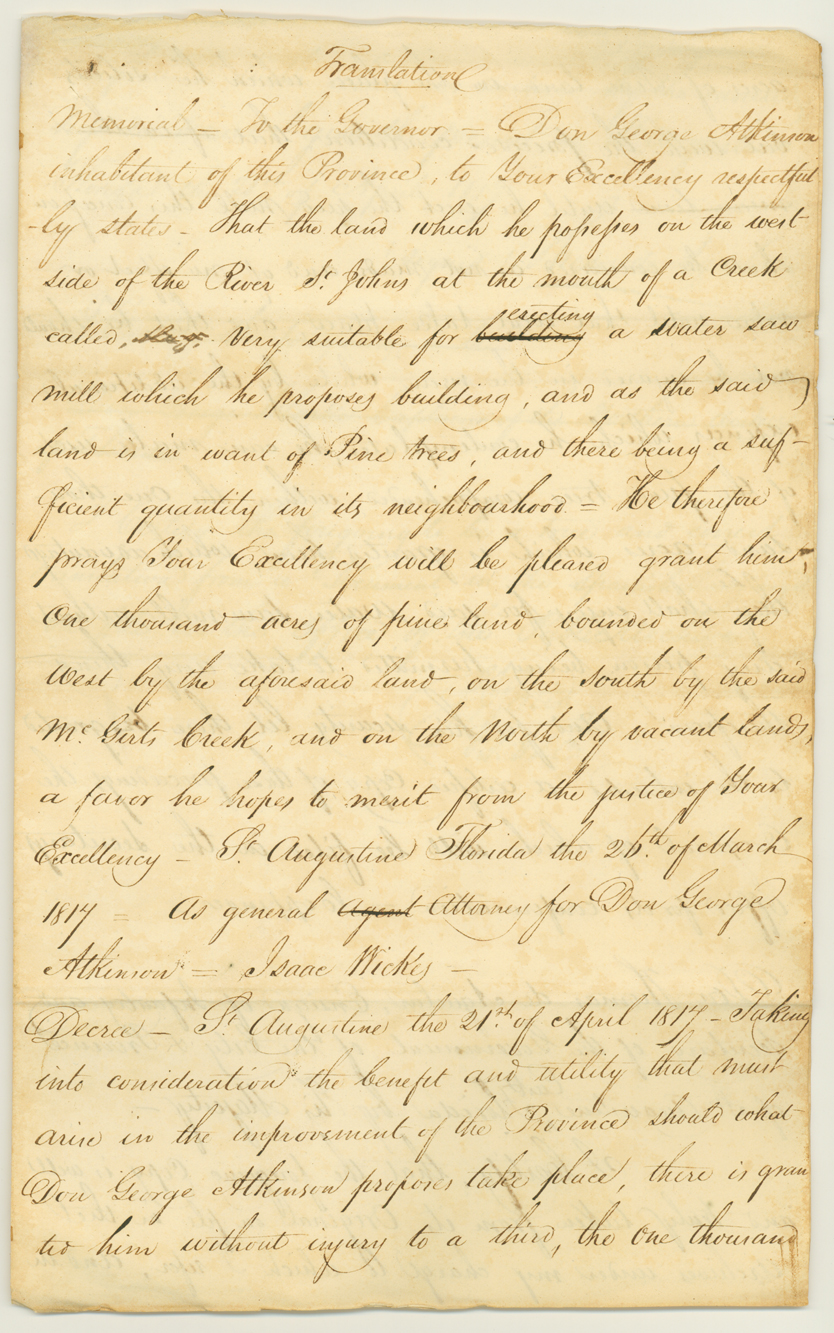 Translation
Memorial – To the Governor = Don George Atkinson
inhabitant of this Province, to Your Excellency respectful
-ly states – That the land which he possesses on the west
side of the River St. Johns at the mouth of a Creek
called, very suitable for building erecting a water saw
mill which he proposes building, and as the said
land is in want of Pine trees, and there being a suf-
ficient quantity in its neighbourhood = He therefore
prays Your Excellency will be pleased grant him,
One thousand acres of pine land, bounded on the
West by the aforesaid land, on the South by the said
Mc. Girts Creek, and on the North by vacant lands,
a favor he hopes to merit from the justice of Your
Excellency – St. Augustine Florida the 26th. of March
1817 = As general Agent Attorney for Don George
Atkinson = Isaac Wickes –
Decree – St. Augustine the 21st. of April 1817 – Taking
into consideration the benefit and utility that must
arise in the improvement of the Province should what
Don George Atkinson proposes take place, there is gran
ted him without injury to a third, the One thousand